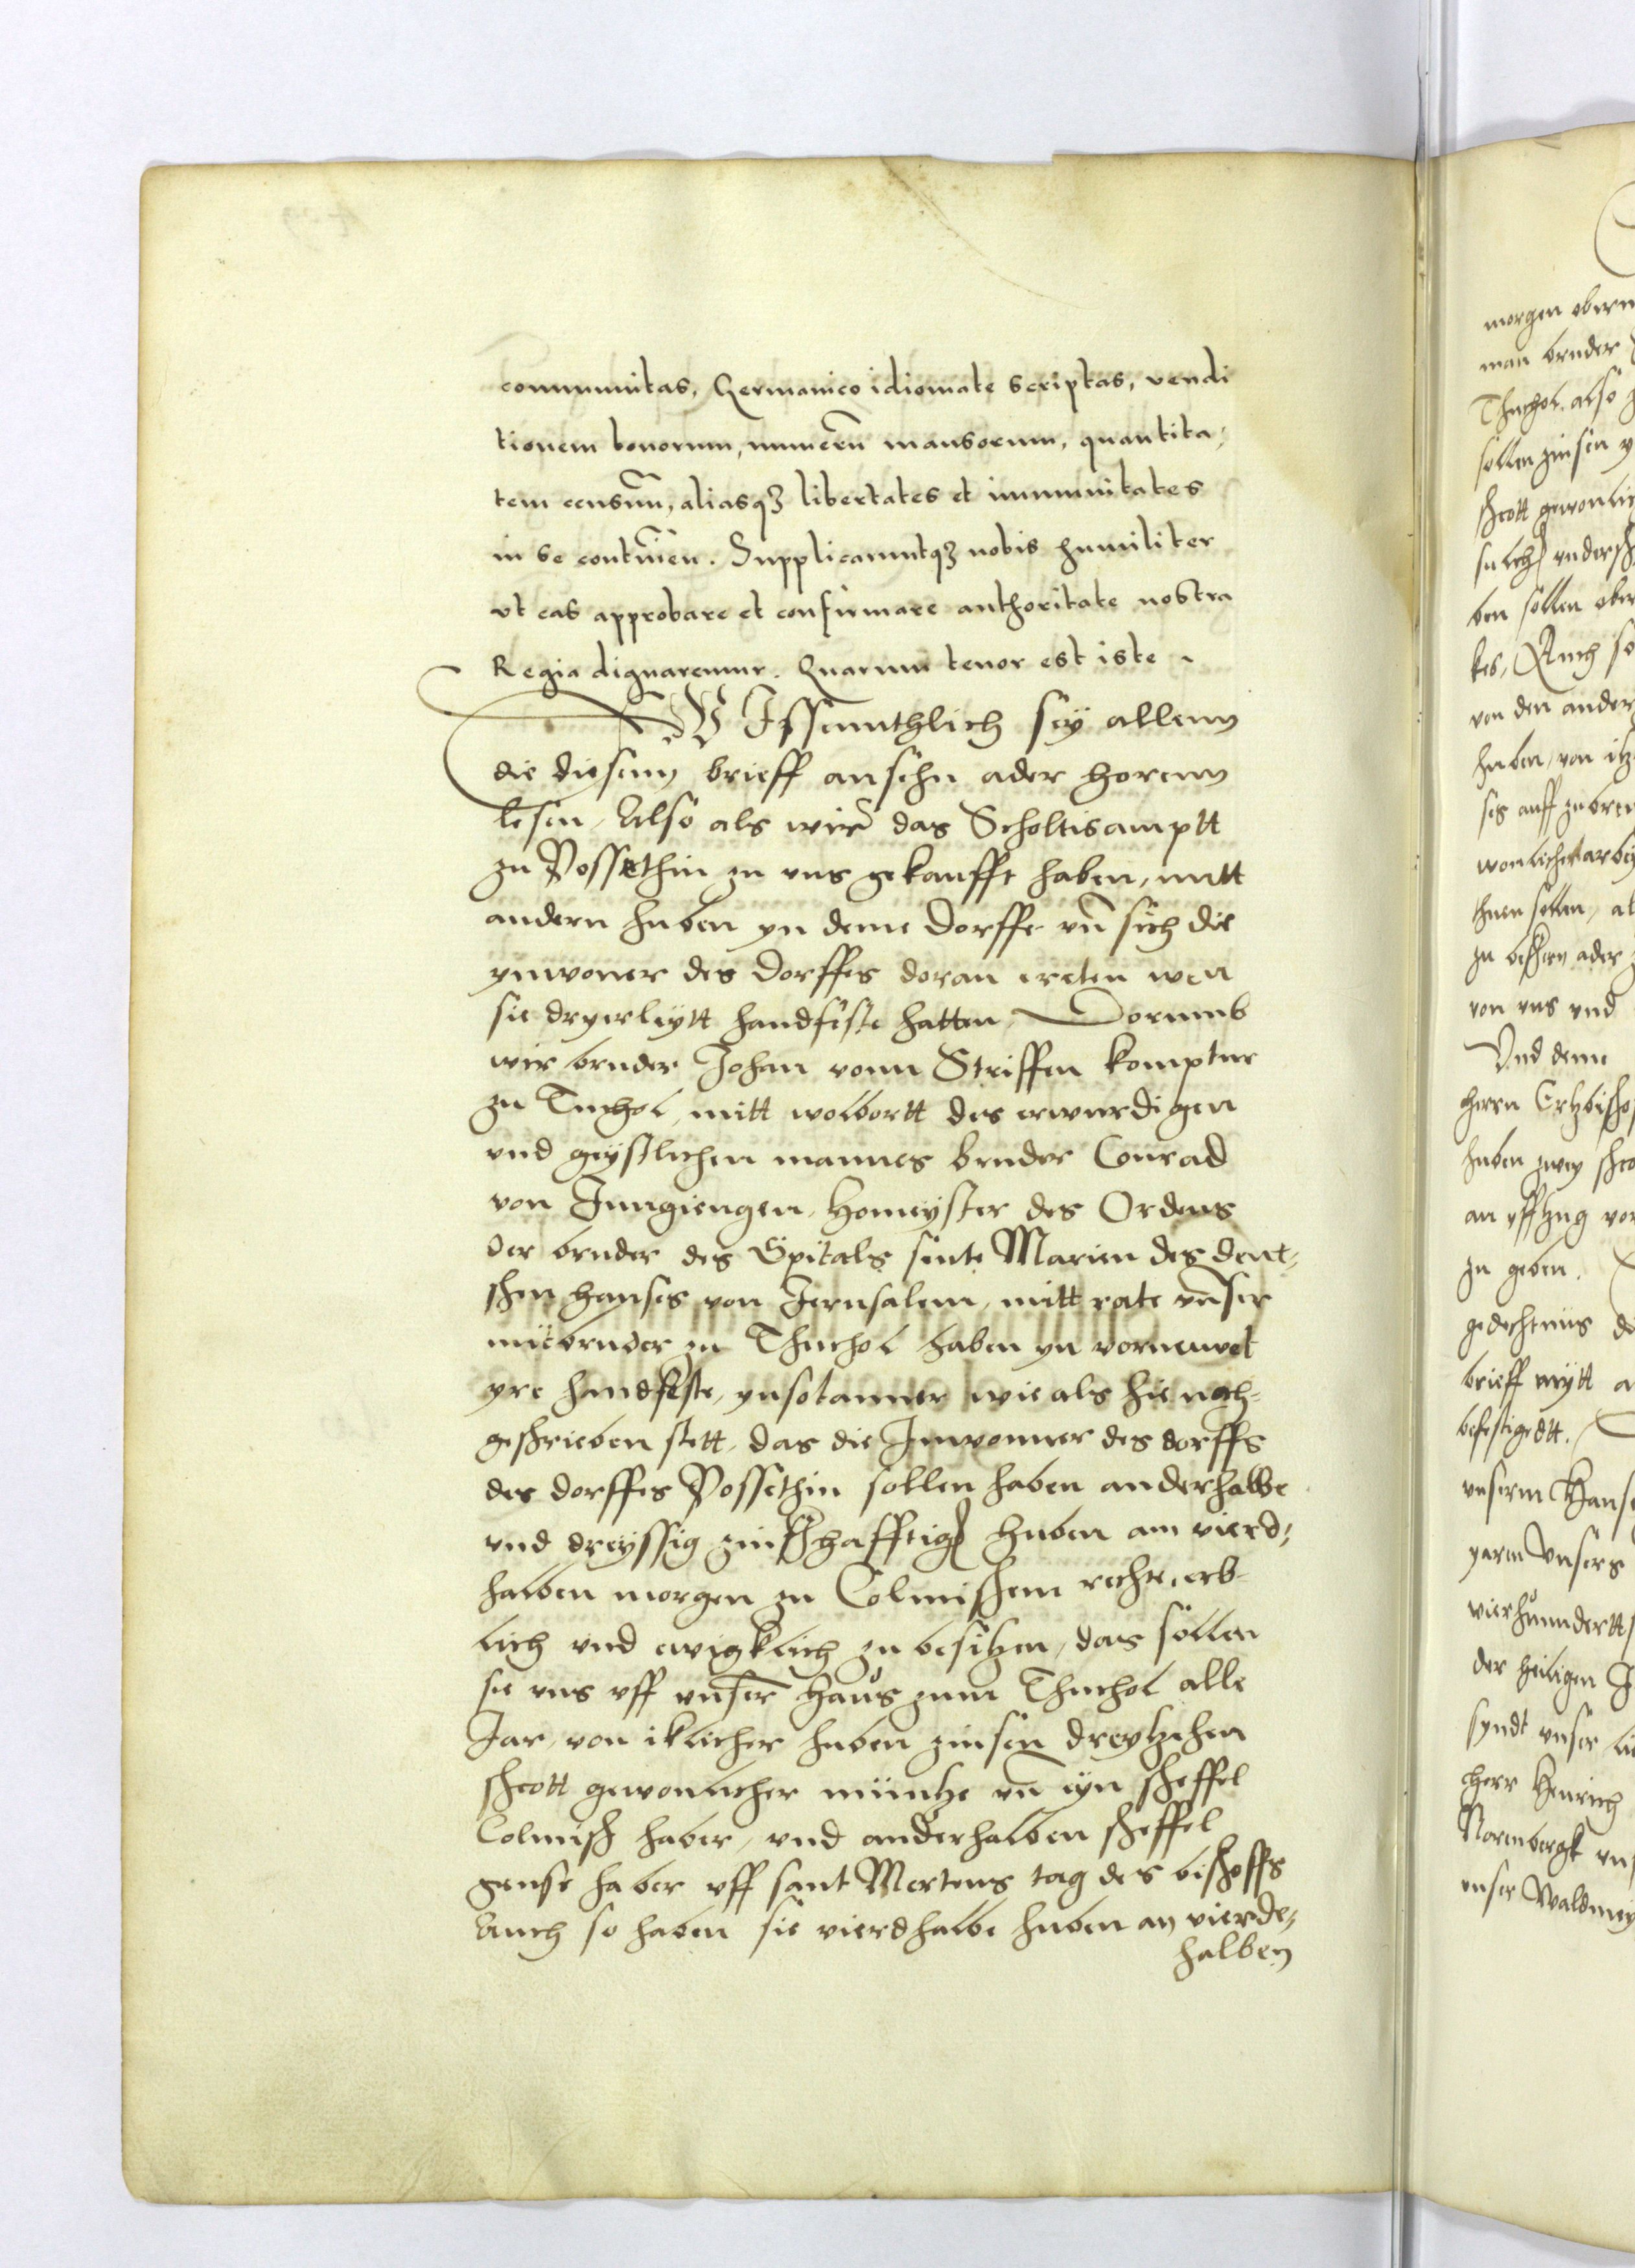 communitas, Germanico idiomate scriptas, vendi
tionem bonorum, numerũ mansorum, quantita,
tem censuũ, aliasqꝫ libertates et immunitates
in se contineñ. Supplicaruntqꝫ nobis humiliter
vt eas approbare et confirmare authoritate nostra
Regia dignaremur. Quarum tenor est iste
WIssennthlich sey allenn
die diesenn brieff ansehn ader horenn
lesen, Also als wir das Scholtisamptt
zu Possethin zu vns gekaufft haben, mitt
andern huben yn deme dorffe vñ sich die
ynwoner des dorffes doran ireten wen
sie dryerleytt handfeste hatten, Dorumb
wir bruder Johan vonn Striffen komptur
zu Tuchol, mitt wolbortt des erwurdigen
vnd geystlichen mannes bruder Conrad
von Jungiengen, Homeyster des Ordens
der bruder des Spitals sinte Marien des deut,
schen hauses von Jerusalem, mitt rate vnser
mitbruder zu Thuchol haben yn vorneuwet
yre handfeste, ynsotanner wie als hie nach,
geschrieben stett, das die Inwonner des dorffs
des dorffes Possethin sollen haben anderhalbe
vnd dreyssig zinßhafftige huben am vierd,
halben morgen zu Colmischem rechte, erb
lich vnd ewigklich zu besitzen, das sollen
sie vns vff vnser Haus zum Thuchol alle
Jar, von iklicher huben zinsen dreytzehen
schott gewonlicher muntze vñ eyn scheffel
Colmisch haber, vnd anderhalben scheffel
gense haber vff sant Mertens tag des bischoffs
Auch so haben sie vierdhalbe huben an vierde,
halben
morgen
man bruder
Thuchol also
sollen zinsen
schott
ben sollen
kes, Auch so
von den ander
huben, von
ses auff
thuen sollen,
zu bessern ader
von vns vnd
Vnd deme
herrn Ertzbischo
huben zwey
an
zu geben.
gedechtnus
brieff mytt
befestigedtt.
vnserm Hause
yaren Vnsers
vierhunndertt
der heiligen
syndt vnser
Herr Heinrich
Norenbergk
vnser Waldmey